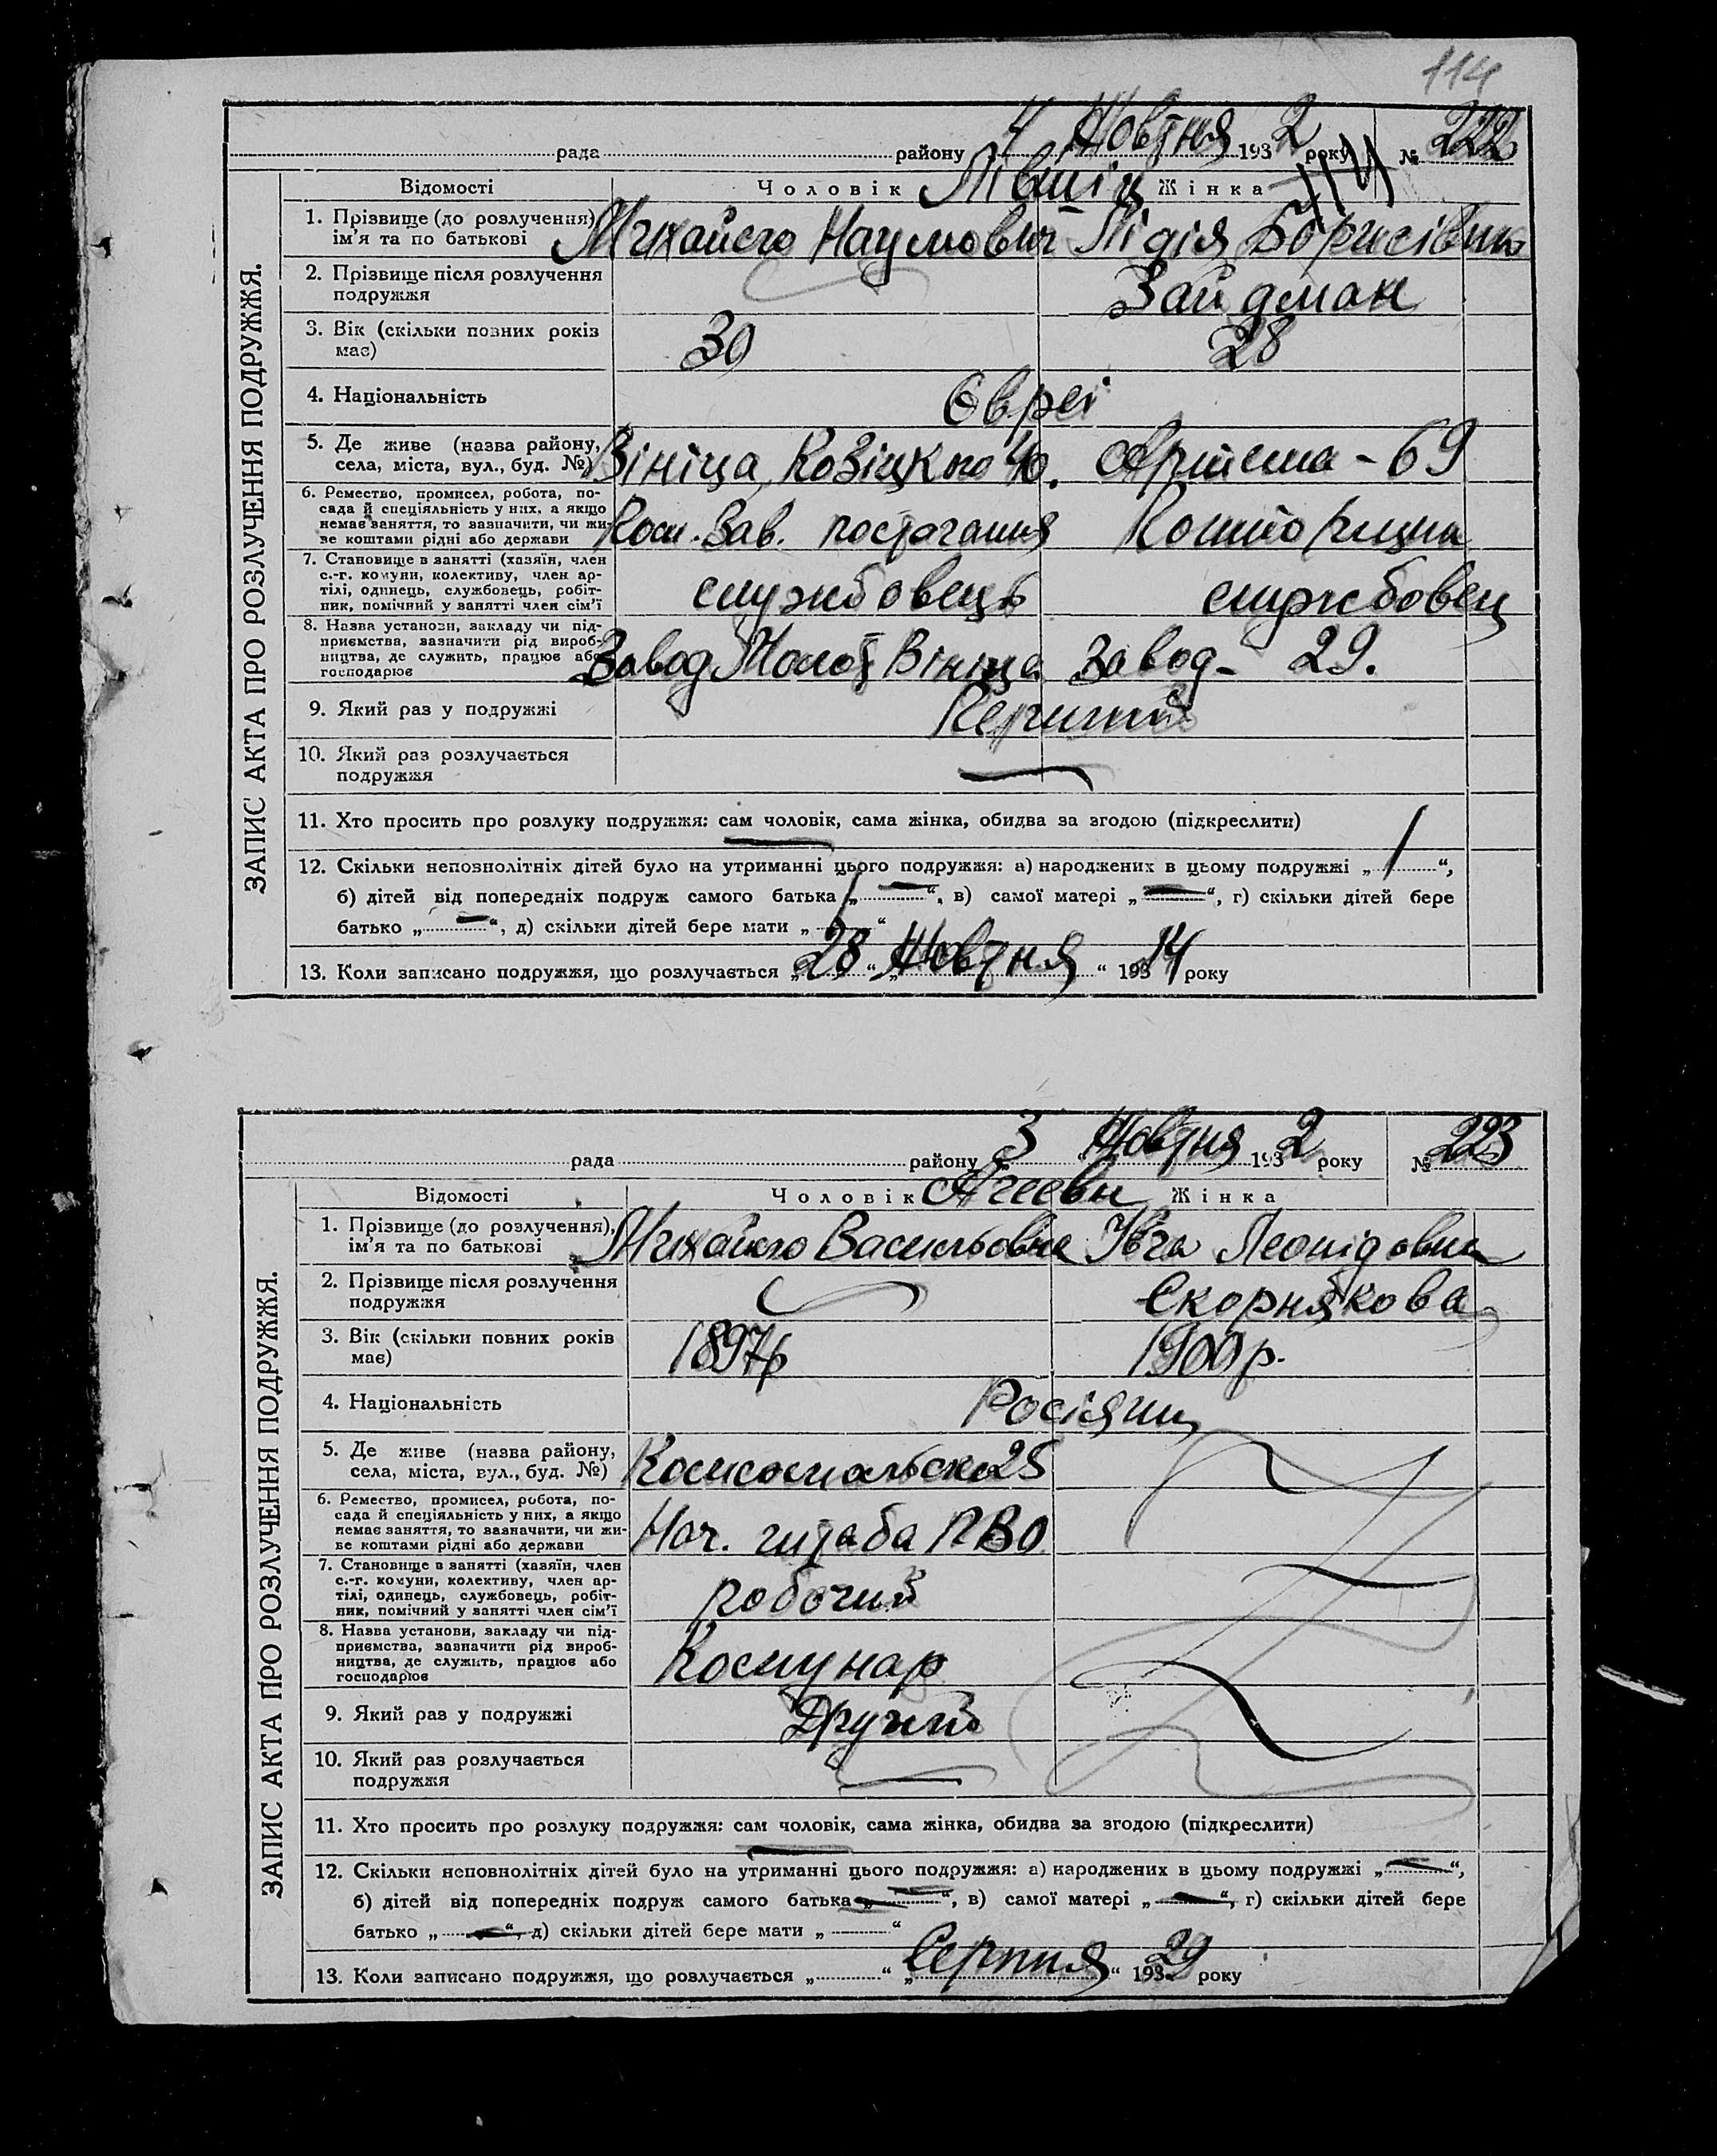 114
рада району 4 Жовтня 1932 року № 222
114
Відомості Чоловік Лівшіц Жінка
ЗАПИС АКТА ПРО РОЗЛУЧЕННЯ ПОДРУЖЖЯ.
1. Прізвище (до розлучення) Михайло Наумович Лідія Борисівна
ім'я та по батькові
2. Прізвище після розлучення Зайдман
подружжя
3. Вік (скільки повних років 30 28
має)
4. Національність Євреі
5. Де живе (назва району, Вініца, Козіцкого 40. Артема - 69
села, міста, вул., буд. №)
6. Ремество, промисел, робота, по-
сада й спеціяльність у них, а якщо
немає заняття, то зазначити, чи жи- Зав. постачання
ве коштами рідні або держави
7. Становище в занятті (хазяїн, член
с.-г. комуни, колективу, член ар-
тілі, одинець, службовець, робіт- службовець службовец
ник, помічний у занятті член сім'ї
8. Назва установи, закладу чи під-
приємства, зазначити рід вироб-
ництва, де служить, працює або Завод Молот Вініца Завод - 29.
господарює
9. Який раз у подружжі
10. Який раз розлучається
подружжя
11. Хто просить про розлуку подружжя: сам чоловік, сама жінка, обидва за згодою (підкреслити)
12. Скільки неповнолітніх дітей було на утриманні цього подружжя: а) народжених в цьому подружжі „ 1 “,
б) дітей від попередніх подруж самого батька „ — “, в) самої матері „ — “, г) скільки дітей бере
батько „ — “, д) скільки дітей бере мати „ 1 “
13. Коли записано подружжя, що розлучається „ 28 “ „ Жовтня “ 193 14 року
рада району 3 Жовтня 1932 року № 223
Відомості Чоловік Агеевы Жінка
ЗАПИС АКТА ПРО РОЗЛУЧЕННЯ ПОДРУЖЖЯ.
1. Прізвище (до розлучення), Михайло Леонідовна
ім'я та по батькові
2. Прізвище після розлучення Скорнякова
подружжя
3. Вік (скільки повних років 1897р 1900р.
має)
4. Національність Росіяни
5. Де живе (назва району, Комсомольска 25
села, міста, вул., буд. №)
6. Ремество, промисел, робота, по-
сада й спеціяльність у них, а якщо
немає заняття, то зазначити, чи жи- Нач. штаба ПВО
ве коштами рідні або держави
7. Становище в занятті (хазяїн, член
с.-г. комуни, колективу, член ар-
тілі, одинець, службовець, робіт- робочий
ник, помічний у занятті член сім'ї
8. Назва установи, закладу чи під-
приємства, зазначити рід вироб-
ництва, де служить, працює або Комунар
господарює
9. Який раз у подружжі Другий
10. Який раз розлучається
подружжя
11. Хто просить про розлуку подружжя: сам чоловік, сама жінка, обидва за згодою (підкреслити)
12. Скільки неповнолітніх дітей було на утриманні цього подружжя: а) народжених в цьому подружжі „ — “,
б) дітей від попередніх подруж самого батька „ — “, в) самої матері „ — “, г) скільки дітей бере
батько „ — “, д) скільки дітей бере мати „ “
13. Коли записано подружжя, що розлучається „ “ „ Серпня “ 193 29 року